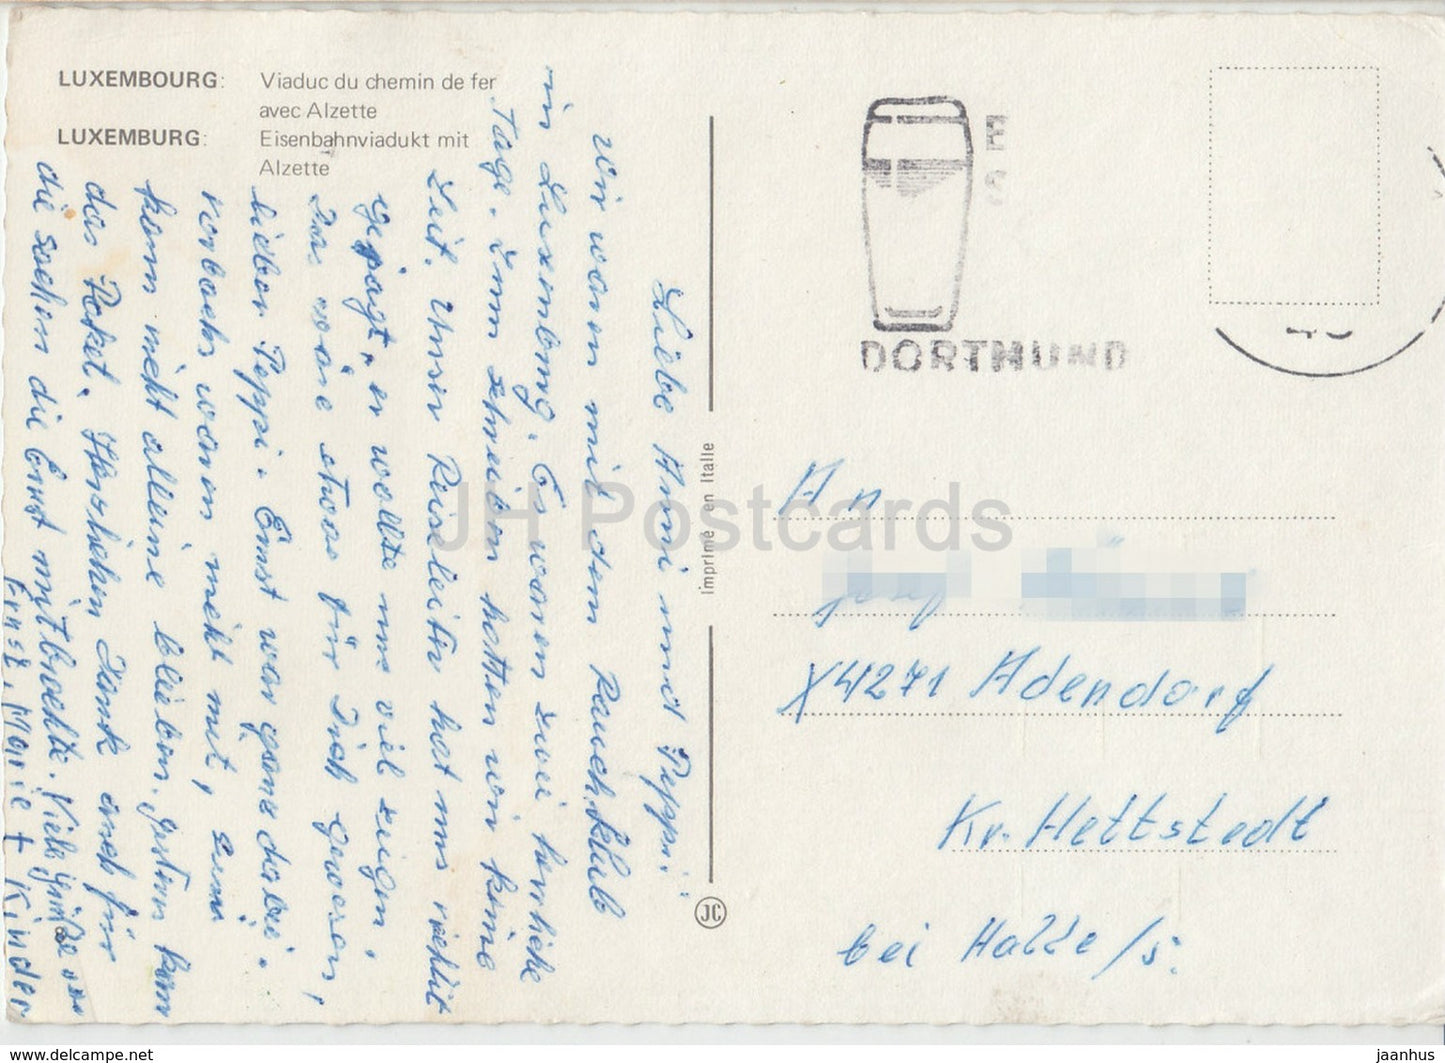 LUXEMBOURG: Viaduc du chemin de fer
avec Alzette
LUXEMBURG: Eisenbahnviadukt mit
Alzette
Liebe Anni und Peppi!
Wir waren mit dem Rauchklub
in Luxemburg. Es waren zwei herrliche
Tage. Zum schreiben hatten wir keine
Zeit. Unser Reiseleiter hat uns richtig
gejagt, er wollte uns viel zeigen.
Das wäre etwas für Dich gewesen,
lieber Peppi. Ernst war ganz dabei.
waren nicht mit,
kann nicht alleine bleiben. gestern kam
das Paket. Herzlichen Dank auch für
die sachen die Ernst mitbrachte. Viele Grüße von
Ernst, Marie + Kinder
Imprimé en Italie
JC
DORTMUND
An
Josef
X4271 Adendorf
Kr. Hettstedt
bei Halle/S.
JH Postcards
https://www.delcampe.net
jaanhus